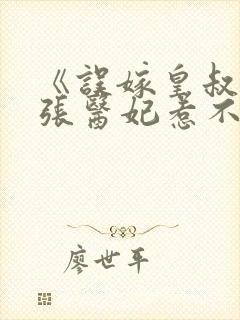 《誤嫁皇叔
張醫妃惹不
廖世平